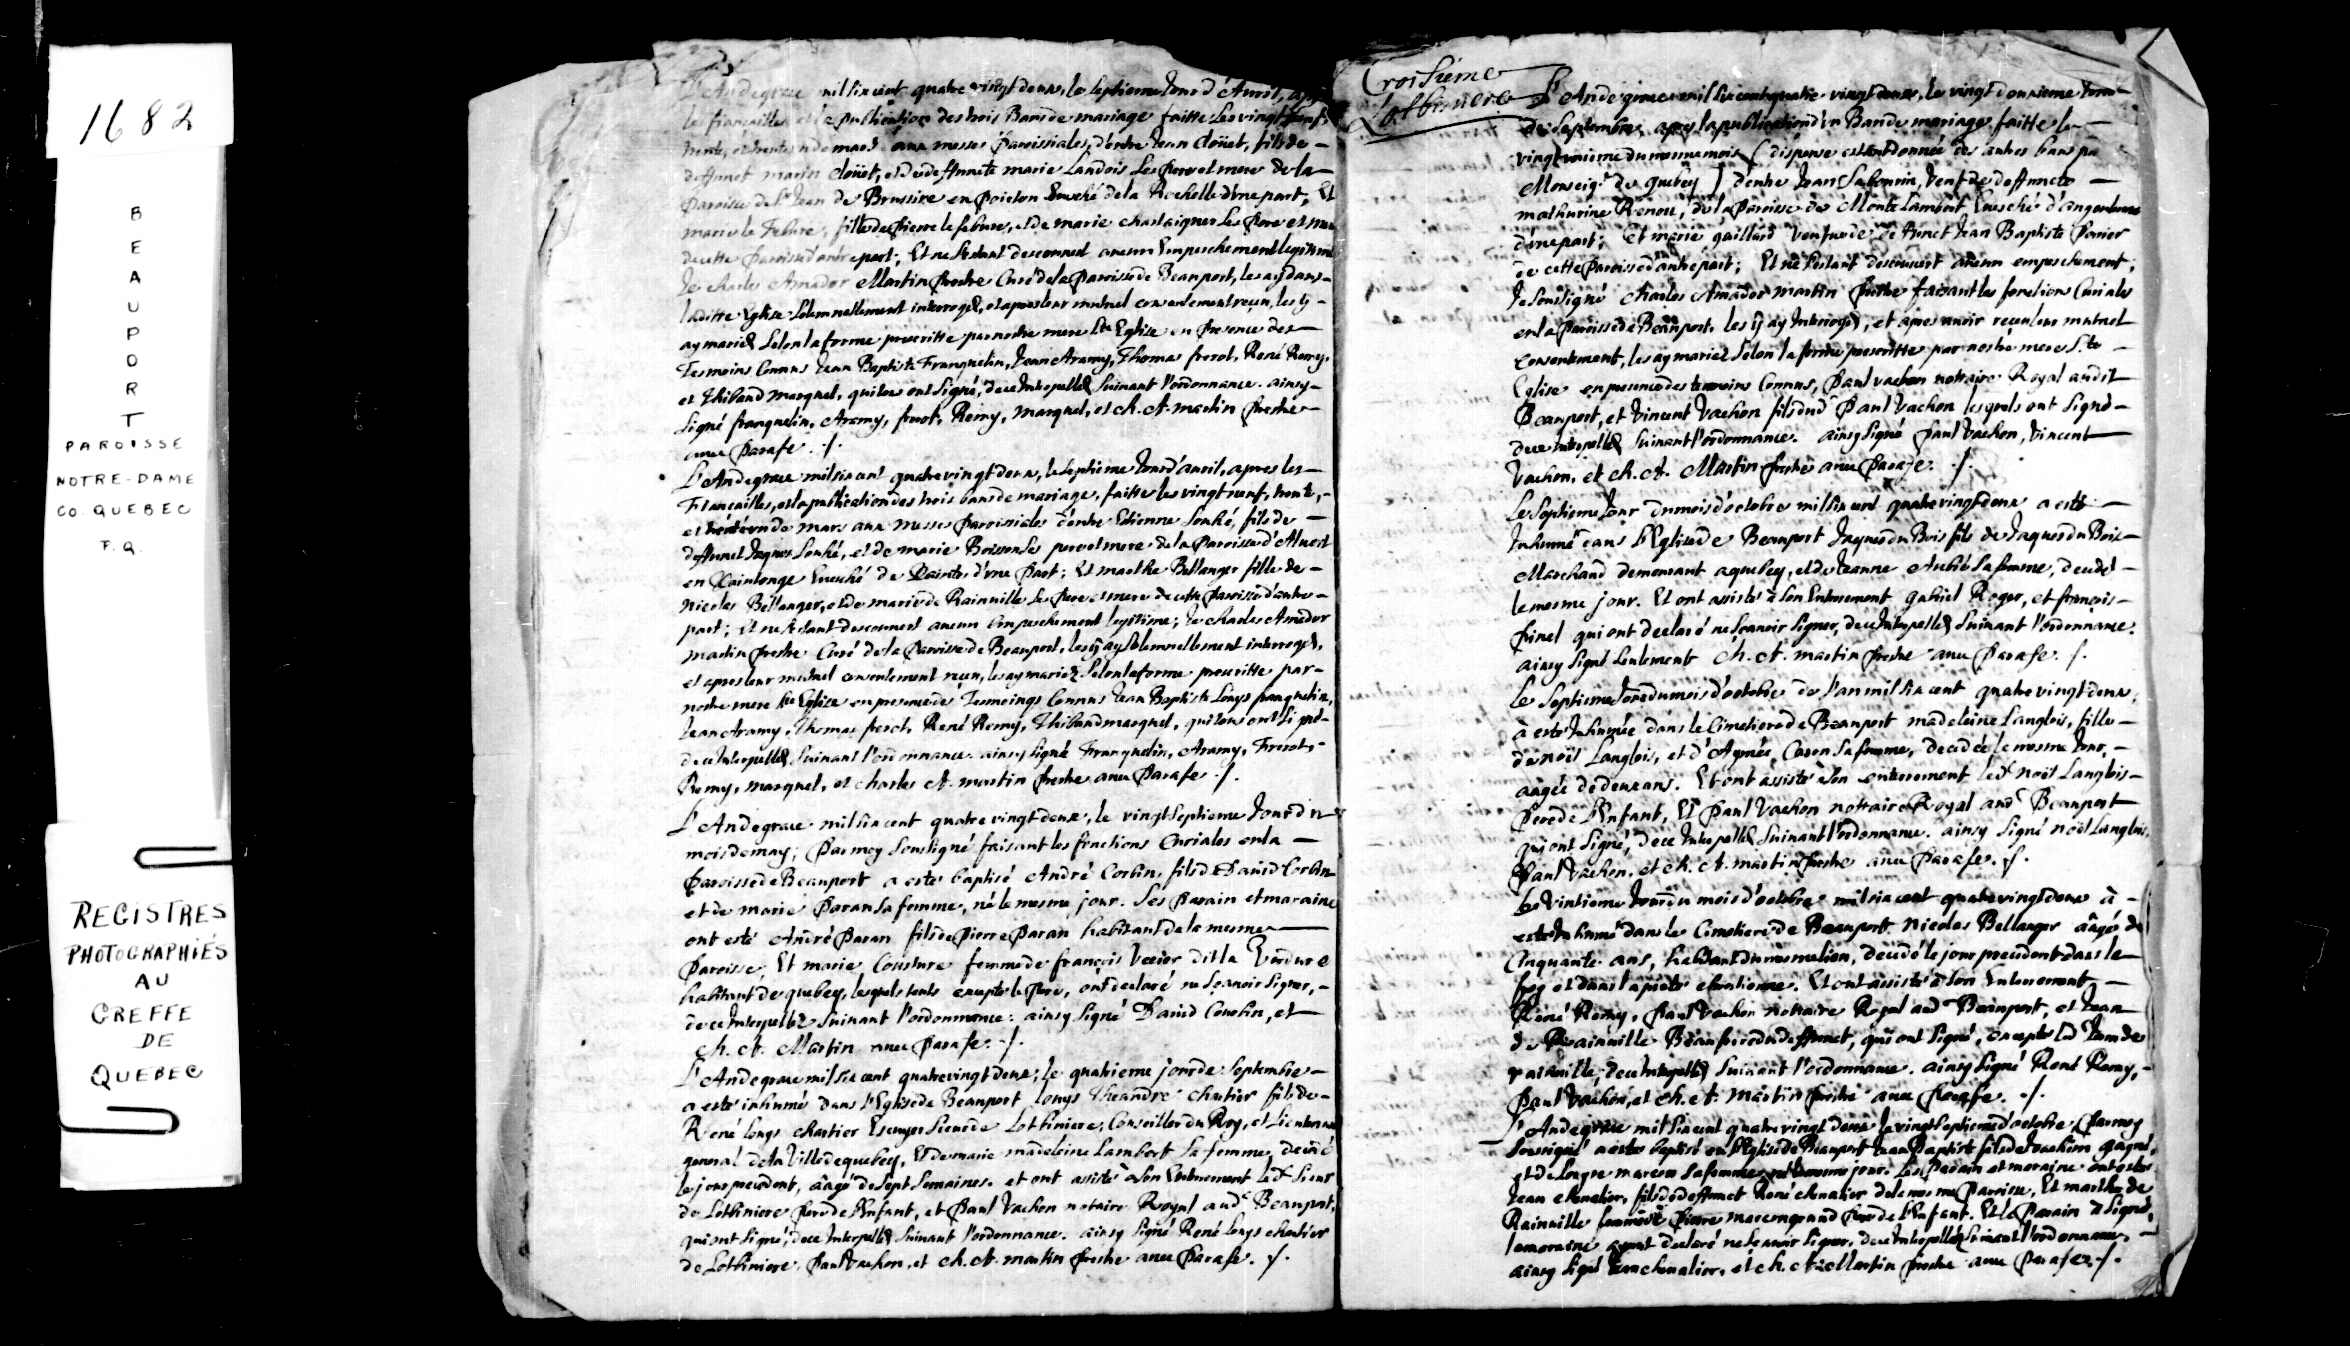 1682
BEAUPORT
PAROISSE
NOTRE-DAME
CO. QUEBEC
P.Q.
REGISTRES
PHOTOGRAPHIÉS
AU
GREFFE
DE
QUEBEC
L'An de grace mil six cent quatre vingt deux, le septieme Jour d'Avril,
les fiancailles et la publication des trois Bans de mariage faitte les vingt neuf,
trente, et mars aux messes Paroissiales, d'entre Jean clöüet, fils de
deffunct clöüet, et de deffuncte marie Landois Ses Pere et mere de la
Paroisse de St Jean de Brussire en Poictou Evesché de la Rochelle d'une part; Et
marie le Febure, fille de Pierre le febure, et de marie chastaigner Ses Pere et mere
de cette Paroisse d'autre part; Et ne s'estant descouvert aucun Empeschement legitime
Je Charles Amador Martin Prestre Curé de la Paroisse de Beauport, les ay dans
laditte Eglise solemnellement interrogéz, et apres leur mutuel consentement reçeu, les y
ay mariéz Selon la forme prescritte par nostre mere Ste Eglise en Presence des
Tesmoins Connus Jean Baptiste Franquelin, Jean Aramy, Thomas frerot, René Remy,
et Thibaud marquel, qui tous ont Signé, de ce Interpelléz Suivant l'ordonnance. ainsy
Signé franquelin, Aramy, frerot, Remy, marquel, et ch. A. martin Prestre
avec Parafe ./.
L'An de grace mil six cent quatre vingt deux, le septieme Jour d'avril, apres les
Fiançailles, et la publication des trois bans de mariage, faitte les vingt neuf, trente,
et de mars aux messes Paroissiales d'entre Estienne , fils de
deffunct Jaques , et de marie Ses pere et mere de la Paroisse d'
en Xaintonge Evesché de Xaintes d'une Part; Et marthe Bellanger fille de
Nicolas Bellanger, et de marie de Rainville Ses Pere et mere de cette Paroisse d'autre
part; Et ne s'estant descouvert aucun Empeschement legitime; Je charles Amador
martin Prestre Curé de la Paroisse de Beauport, les y ay solemnellement interrogéz,
et apres leur mutuel consentement reçeu, les ay mariéz Selon la forme prescritte par
nostre mere Ste Eglise en presence des Tesmoings Connus Jean Baptiste Louys franquelin,
Jean Aramy, Thomas frerot, René Remy, Thibaud marquel, qui tous ont Signé
de ce Interpelléz Suivant l'ordonnance. ainsy signé Franquelin, Aramy, Frerot,
Remy, marquel, et charles A. martin Prestre avec Parafe ./.
L'An de grace mil six cent quatre vingt deux, le vingt septieme Jour du
mois de may; Par moy Soussigné faisant les fonctions Curiales en la
Paroisse de Beauport a esté baptisé André Corbin, fils de David Corbin
et de marie Paran sa femme, né le mesme jour. Ses Parain et maraine
ont esté André Paran fils de Pierre Paran habitant de la mesme
Paroisse; Et marie Cousture femme de françois Vezier dit la Verdure
habitant de quebey, lesquels touts excepté le Pere, ont declaré ne Sçavoir Signer,
de ce Interpelléz suivant l'ordonnance: ainsy signé David Corbin, et
ch. A. Martin avec Parafe ./.
L'An de grace mil six cent quatre vingt deux, le quatrieme jour de Septembre
a esté inhumé dans l'Eglise de Beauport Louys Theandre chartier fils de
René Louys chartier Escuyer Sieur de Lotbiniere, Conseiller du Roy, et Lieutenant
general de la Ville de quebey, Et de marie madeleine Lambert Sa femme, decedé
le jour precedent, aâgé de sept Semaines. et ont assisté à son Enterrement led. Sieur
de Lotbiniere Pere de l'Enfant, et Paul Vachon notaire Royal aud. Beauport,
qui ont Signé, de ce Interpelléz Suivant l'ordonnance. ainsy Signé René Louys chartier
de Lotbiniere, Paul Vachon, et ch. A. martin Prestre avec Parafe ./.
Troisieme
Lotbiniere
L'An de grace mil six cent quatre vingt deux, le vingt deuxieme Jour
de Septembre, apres la publication d'un Ban de mariage faitte le
vingt du mesme mois (dispense estant donnée des autres bans par
Monseigr. de quebey) d'entre Jean , veuf de deffuncte
mathurine Renou, de la Paroisse de Lambert Evesché d'
d'une part; Et marie gaillard veufue de deffunct Jean Baptiste
de cette Paroisse d'autre part; Et ne s'estant descouvert aucun empeschement;
Je Soussigné Charles Amador martin Prestre faisant les fonctions Curiales
en la Paroisse de Beauport, les y ay Interrogéz, et apres avoir receu leur mutuel
Consentement, les ay mariéz Selon la forme prescritte par nostre mere Ste
Eglise en presence des tesmoins Connus, Paul vachon nottaire Royal audit
Beauport, et Vincent Vachon fils dud. Paul Vachon lesquels ont Signé
de ce Interpelléz Suivant l'ordonnance. ainsy signé Paul Vachon, Vincent
Vachon, et ch. A. Martin Prestre avec Parafe ./.
Le Septieme Jour du mois d'octobre mil six cent quatre vingt deux a esté
Inhumé dans l'Eglise de Beauport Jaques du Bois fils de Jaques du Bois
Marchand demeurant a quebey, et de Jeanne Aubé sa femme, decedé
le mesme jour. Et ont assisté à son Enterrement gabriel Roger, et françois
Pinel qui ont declaré ne sçavoir signer, de ce Interpelléz Suivant l'ordonnance.
ainsy signé seulement ch. A. martin Prestre avec Parafe ./.
Le Septieme Jour du mois d'octobre de l'an mil six cent quatre vingt deux,
à esté Inhumée dans le Cimetiere de Beauport madeleine Langlois, fille
de noël Langlois, et d'Aymée Caron sa femme, decedée le mesme Jour,
aagée de deux ans. Et ont assisté à son enterrement led. noël Langlois
Pere de l'Enfant, Et Paul Vachon nottaire Royal aud. Beauport
qui ont Signé, de ce Interpelléz Suivant l'ordonnance. ainsy signé noël Langlois,
Paul Vachon, et ch. A. martin Prestre avec Parafe ./.
Le Vintieme Jour du mois d'octobre mil six cent quatre vingt deux à
esté Inhumé dans le Cimetiere de Beauport Nicolas Bellanger aâgé de
Cinquante ans, habitant du mesme lieu, decedé le jour precedent dans la
foy et dans la pieté chrestienne. Et ont assisté à son Enterrement
René Remy, Paul Vachon nottaire Royal aud. Beauport, et Jean
de Rainville Beaufrere du deffunct, qui ont signé, excepté led. Jean de
rainville, de ce Interpelléz Suivant l'ordonnance. ainsy signé René Remy,
Paul Vachon, et ch. A. Martin Prestre avec Parafe ./.
L'An de grace mil six cent quatre vingt deux le vingt septieme d'octobre, Par moy
Soussigné a esté baptisé en l'Eglise de Beauport Jean Baptiste fils de Joachim gagné,
et de Louyse marcou sa femme, né le mesme jour. Ses Parain et maraine ont esté
Jean chevalier, fils de deffunct René chevalier de la mesme Paroisse, Et marthe de
Rainville femme de Pierre marcou grand Pere de l'Enfant. Et le Parain a signé,
la maraine ayant declaré ne sçavoir signer, de ce Interpelléz Suivant l'ordonnance.
ainsy signé Jean chevalier, et ch. A. Martin Prestre avec Parafe ./.